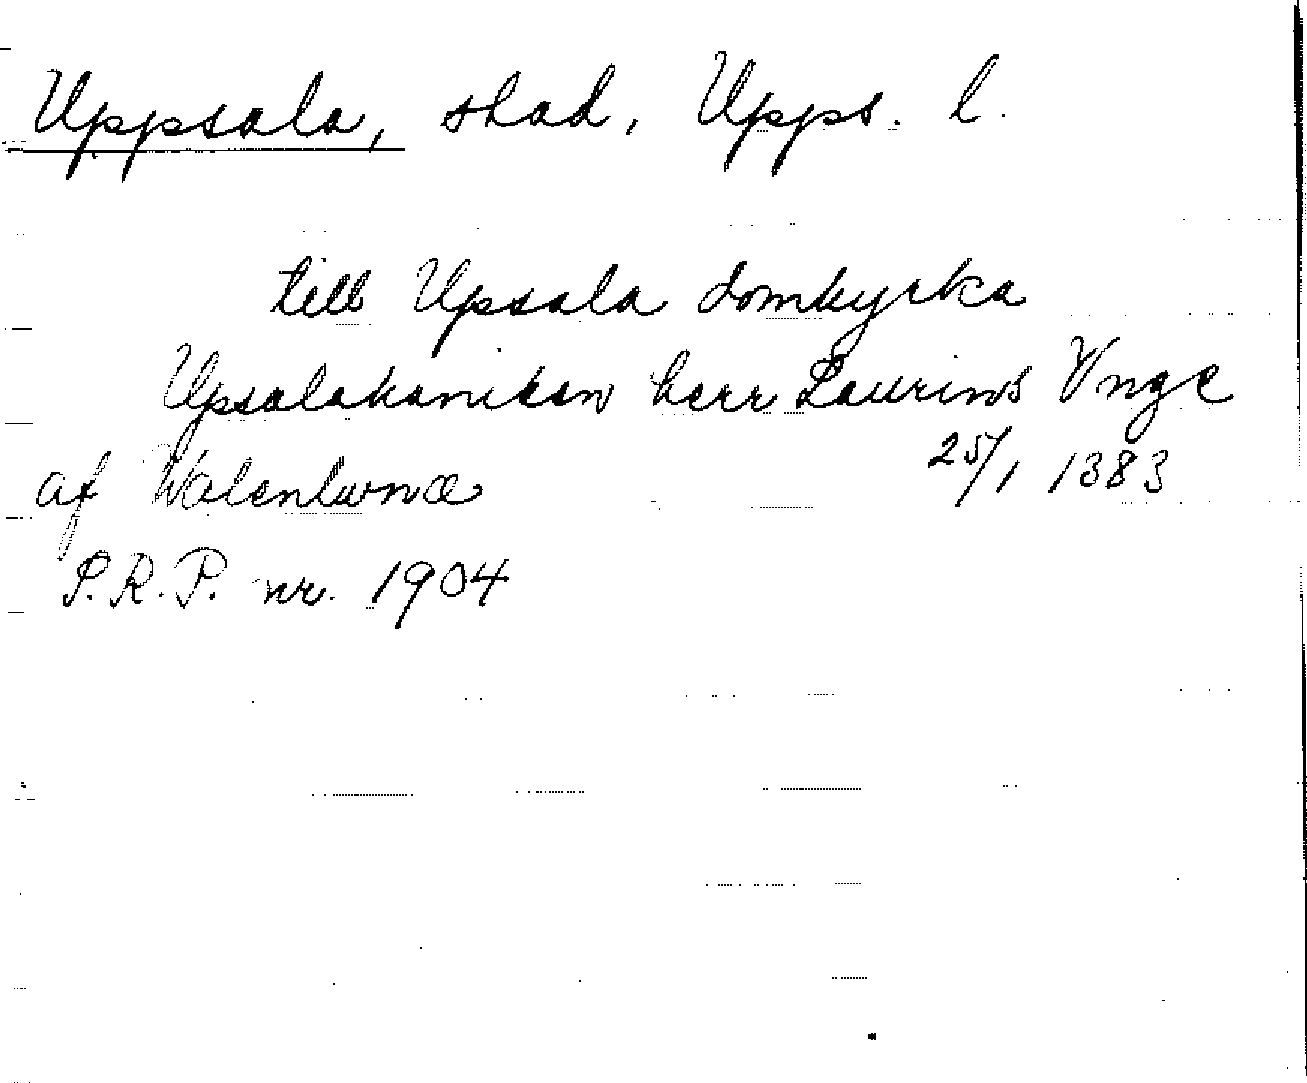 Uppsala, stad, Upps. l.
till Upsala domkyrka
Upsalakaniken herr Laurins Vnge
25/1 1383
af Walentuna
S.R.P. nr. 1904